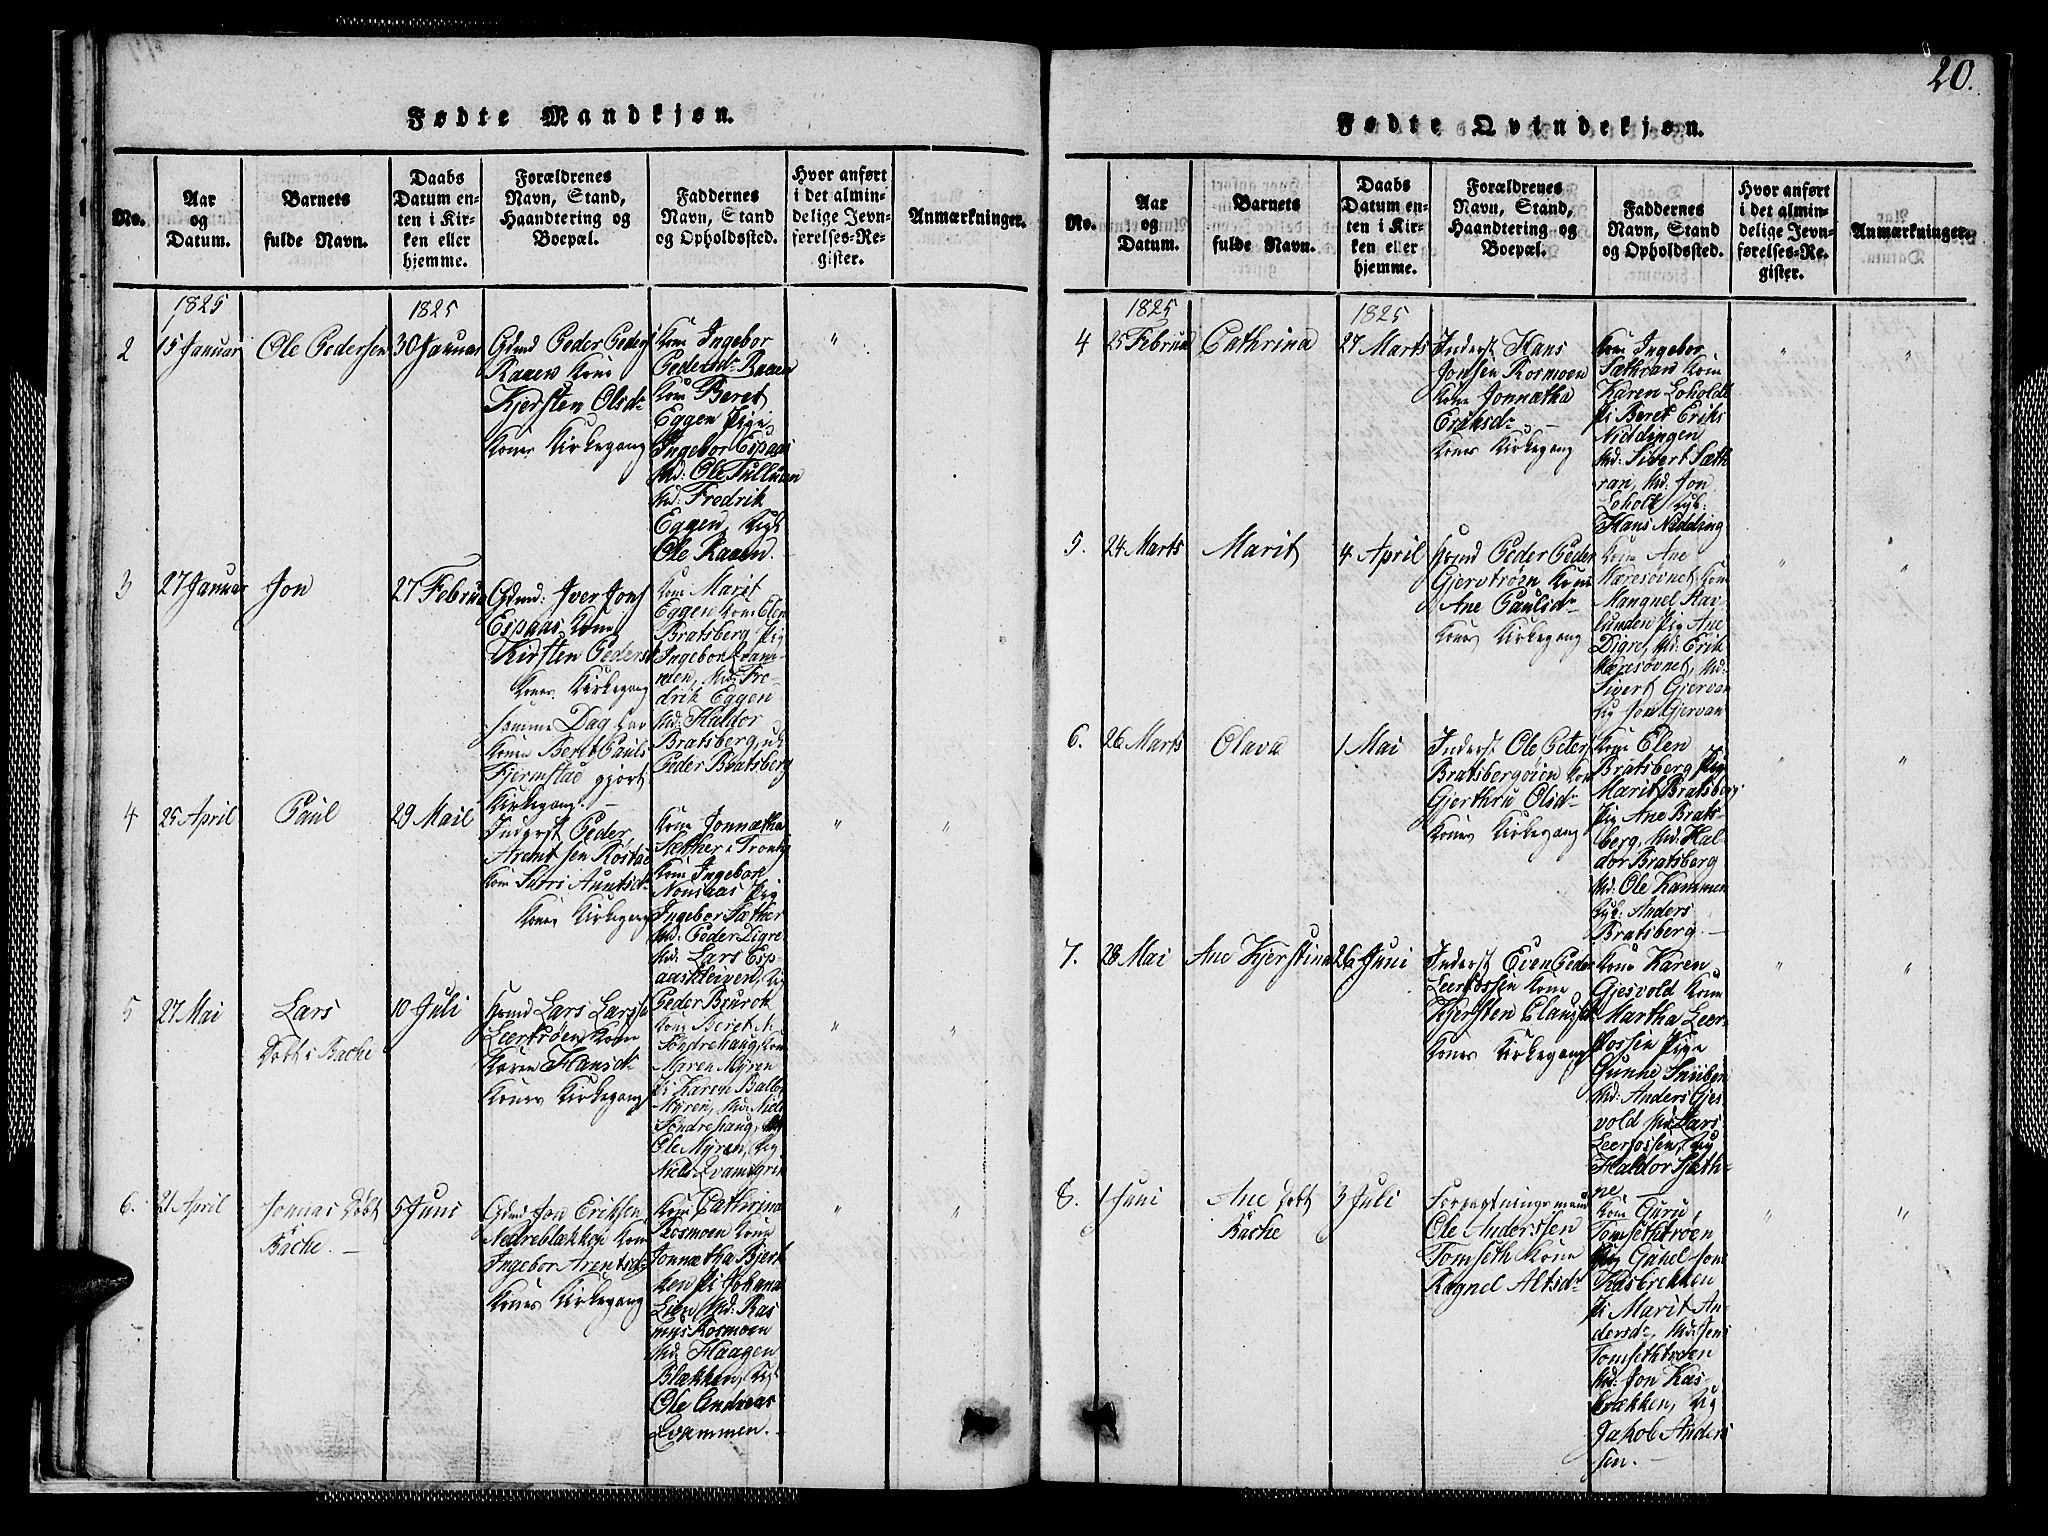 20.
Fødte Mandkjøn.
No.
Aar
og
Datum.
Barnets
fulde Navn.
Daabs
Datum en-
ten i Kir-
ken eller
hjemme.
Forældrenes
Navn, Stand,
Haandtering og
Boepæl.
Faddernes
Navn, Stand
og Opholdssted.
Hvor anført
i det almin-
delige Jevn-
førelses-Re-
gister.
Anmærkninger.
1825
1825
2
15 Januar
Ole Pedersen
30 Januar
Gdmd Peder Peders
Raaen Kone
Kjersten Olsdr
Kones Kirkegang
Kone Ingebor
Pedersdr Raaen
Kone Beret
Eggen Pige
Ingebor Espaas
Md: Ole Tulluan
Md: Fredrik
Eggen, Ygl
Ole Raaen.
"
3
27 Januar
Jon
27 Februar
Gdmd: Iver Jons
Espaas Kone
Kirsten Peders
Kones Kirkegang
samme Dag har
Konen Beret Pauls
Fjermstad gjort
Kirkegang.
Kone Marit
Eggen Kone Elen
Bratsberg Pig
Ingebor Qvam-
men, Md: Fre-
drik Eggen
Md: Haldor
Bratsberg
Peder Bratsberg
4
25 April
Paul
29 Mai
Inderst Peder
Arentsen Rostad
Kone Sara Arntsdr
Kones Kirkegang
Kone Jonnætha
Sæther
Kone Ingebor
Nonsaas Pig
Ingebor Sæther
Md: Peder Digre
Md: Lars Esp-
aaskleiven
Peder Brurok
"
"
5
27 Mai
Lars
Døbt i Bache
10 Juli
Huusmd Lars Larss
Leerkrøen Kone
Karen Hansdr
Kones Kirkegang
Kone Beret
Søndrehaug, Kone
Maren Myren
Pi Karen Balle
Myren, Md: Niels
Søndrehaug
Ole Myren
Niels Qvamsgrin
"
"
6.
21 April
Jonas Døbt
i Bache.
5 Juni
Gdmd Jon Eriksen
Nedreblækken Kone
Ingebor Arentsdr
Kones Kirkegang
Kone Cathrina
Rosmoen Kone
Jonnætha Bjerk
ken Pi Johanna
Lien Md: Ras
mus Rosmoen
Md: Haagen
Blækken, Ygl
Ole Andreas
Qvammen.
"
"
Fødte Qvindekjøn.
No.
Aar
og
Datum.
Barnets
fulde Navn.
Daabs
Datum en-
ten i Kir-
ken eller
hjemme.
Forældrenes
Navn, Stand,
Haandtering og
Boepæl.
Faddernes
Navn, Stand
og Opholdssted.
Hvor anført
i det almin-
delige Jevn-
førelses-Re-
gister.
Anmærkninger.
1825
1825
4
25 Februa
Cathrina
27 Marts
Inderst Hans
Jonsen Rosmoen
Kone Jonnætha
Eriksdr
Kones Kirkegang
Kone Ingebor
Sæthran Kone
Karen Loholdt
Pi Beret Eriks
Niddingen
Md: Sivert Sæth
ran, Md: Jon
Loholt Ygl:
Hans Nidding
"
"
5.
24 Marts
Marit
4 April
Huusmd Peder Peder
Gjervtrøen Kone
Ane Paulsdr
Kones Kirkegang
Kone Ane
Maresøvnet, Kone
Mangnel Hav-
lunden Pig Ane
Digre, Md: Erik
Maresøvnet, Md:
Sivert Gjervan
Yg Jon Gjervan
"
"
6.
26 Marts
Olava
1 Mai
Inderst Ole Peter
Bratsbergøien Kone
Gjerthru Olsdr
Kones Kirkegang
Kone Elen
Bratsberg, Pige
Marit Bratsberg
Pig Ane Brats-
berg, Md: Hal-
dor Bratsberg
Md: Ole Kammen
Ygl: Anders
Bratsberg.
"
"
7.
28 Mai
Ane Kjerstina
26 Juni
Inderst Even Peder
Leerfossen Kone
Kjersten Clausd
Kones Kirkegang
Kone Karen
Gjesvold Kone
Martha Leer-
fossen Pige
Gunhe
Md: Anders Gjes
vold Md Lars
Leerfossen, Yg
Haldor Sjeth-
ne
"
"
8.
1 Juni
Ane Døbt
i Bache
3 Juli
Forpagtningsmand
Ole Anderssen
Tomseth Kone
Ragnel Altsdr
Kone Guru
Tomsethtrøen
Pig Gunel som
Kasbrekken
Pi Marit An-
dersdr, Md: Jens
Tomsethtrøen
Md: Jon Kas-
brækken, Yg
Jakob Anders
sen.
"
"